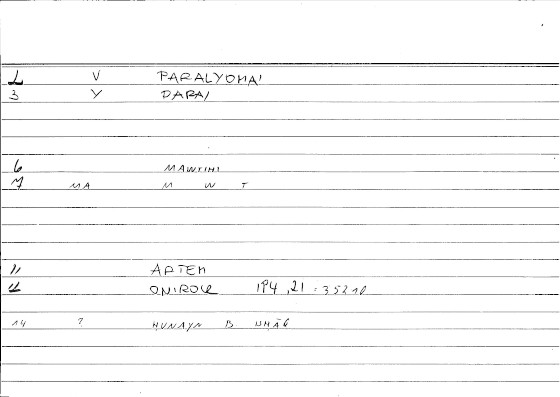 1 V PARALYOMAI
3 Y DARAI
6 MAWTIHI
7 MA M W T
11 ARTEM
ONIROCR 1P4,21 = 35210
14 ? HUNAYN B